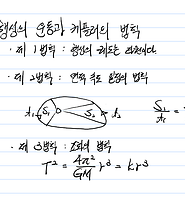 행성의 운동과 케플러의 법칙
· 제 1법칙 : 행성의 궤도는 타원이다.
· 제 2법칙 : 면적 속도 일정의 법칙
t₁ S₁ S₂ t₂ S₁/t₁ =
· 제 3법칙 : 조화의 법칙
T² = 4π²/GM r³ = kr³